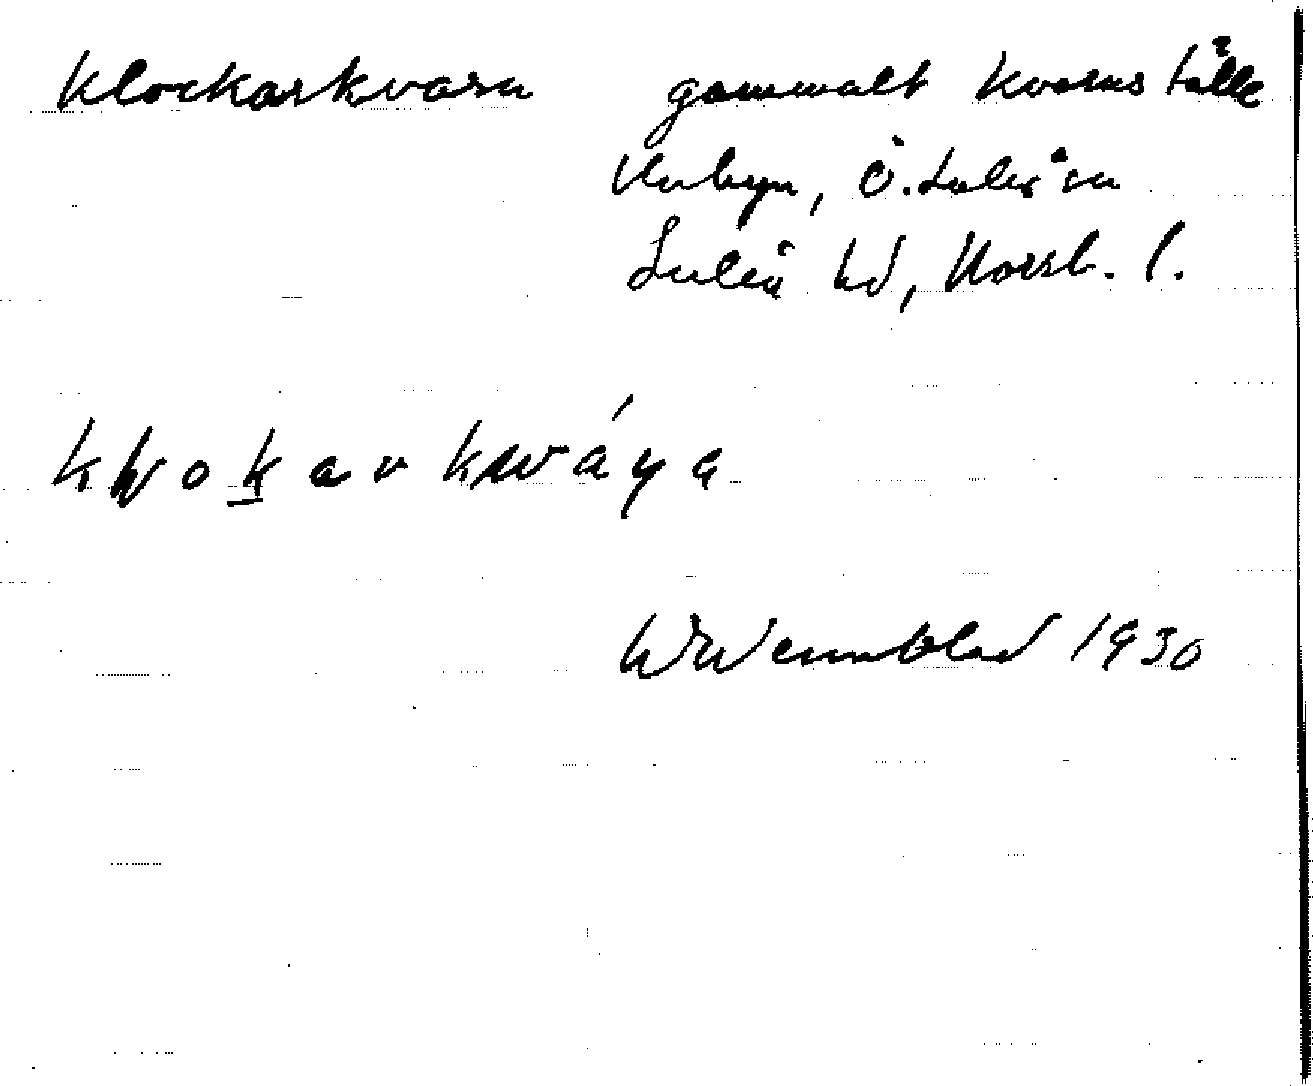 Klockarkvarn gammalt kvarnställe
Unbyn, Ö. Luleå sn
Luleå td, Norrb. l.
W Wennblad 1930